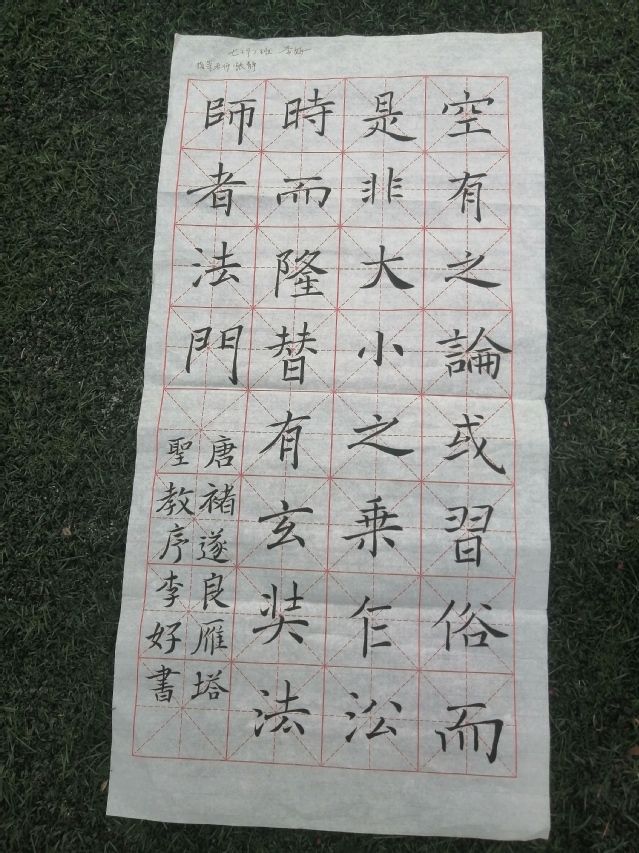 空有之論或習俗而
是非大小之乗乍沿
時而隆替有玄奘法
師者法門
唐褚遂良雁塔
聖教序李好書
指导老师:张静